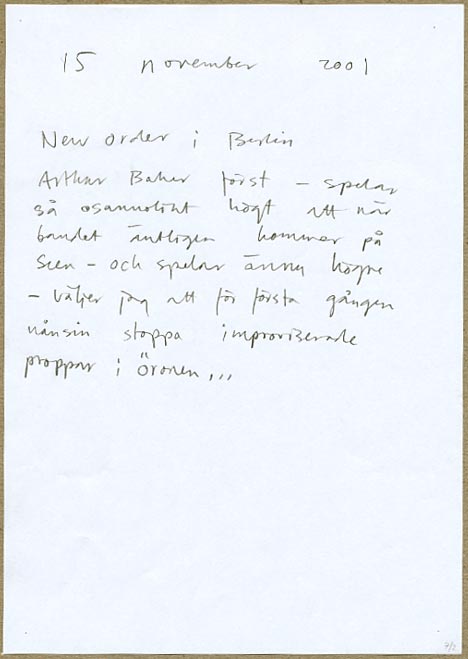 15 november 2001
New order i Berlin
Arthur Baker först – spelar
så osannolikt högt att när
bandet äntligen kommer på
scen – och spelar ännu högre
– väljer jag att för första gången
nånsin stoppa improviserade
proppar i öronen...